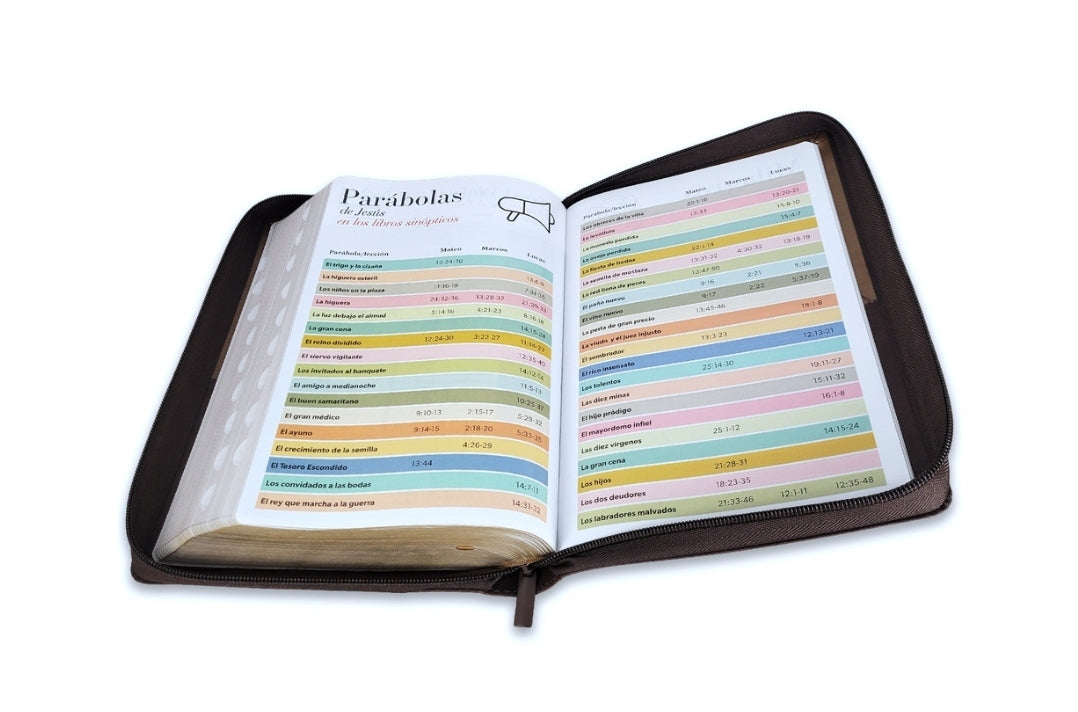 Parábolas
de Jesús
en los libros sinópticos
Parábola/lección Mateo Marcos Lucas
El trigo y la cizaña 13:24-30
La higuera estéril 13:6-9
Los niños en la plaza 11:16-18 7:31-35
La higuera 24:32-36 13:28-32 21:29-33
La luz debajo el almud 5:14-16 4:21-23 8:16-18
La gran cena 14:15-24
El reino dividido 12:24-30 3:22-27 11:14-23
El siervo vigilante 12:35-40
Los invitados al banquete 14:12-14
El amigo a medianoche 11:5-13
El buen samaritano 10:25-37
El gran médico 9:10-13 2:15-17 5:29-32
El ayuno 9:14-15 2:18-20 5:33-35
El crecimiento de la semilla 4:26-29
El Tesoro Escondido 13:44
Los convidados a las bodas 14:7-11
El rey que marcha a la guerra 14:31-32
Parábola/lección Mateo Marcos Lucas
Los obreros de la viña 20:1-16
La levadura 13:33 13:20-21
La moneda perdida 15:8-10
La oveja perdida 15:4-7
La fiesta de bodas 22:1-14
La semilla de mostaza 13:31-32 4:30-32 13:18-19
La red llena de peces 13:47-50
El paño nuevo 9:16 2:21 5:36
El vino nuevo 9:17 2:22 5:37-39
La perla de gran precio 13:45-46
La viuda y el juez injusto 18:1-8
El sembrador 13:3-23
El rico insensato 12:13-21
Los talentos 25:14-30
Las diez minas 19:11-27
El hijo pródigo 15:11-32
El mayordomo infiel 16:1-8
Las diez vírgenes 25:1-12
La gran cena 14:15-24
Los hijos 21:28-31
Los dos deudores 18:23-35
Los labradores malvados 21:33-46 12:1-11 12:35-48